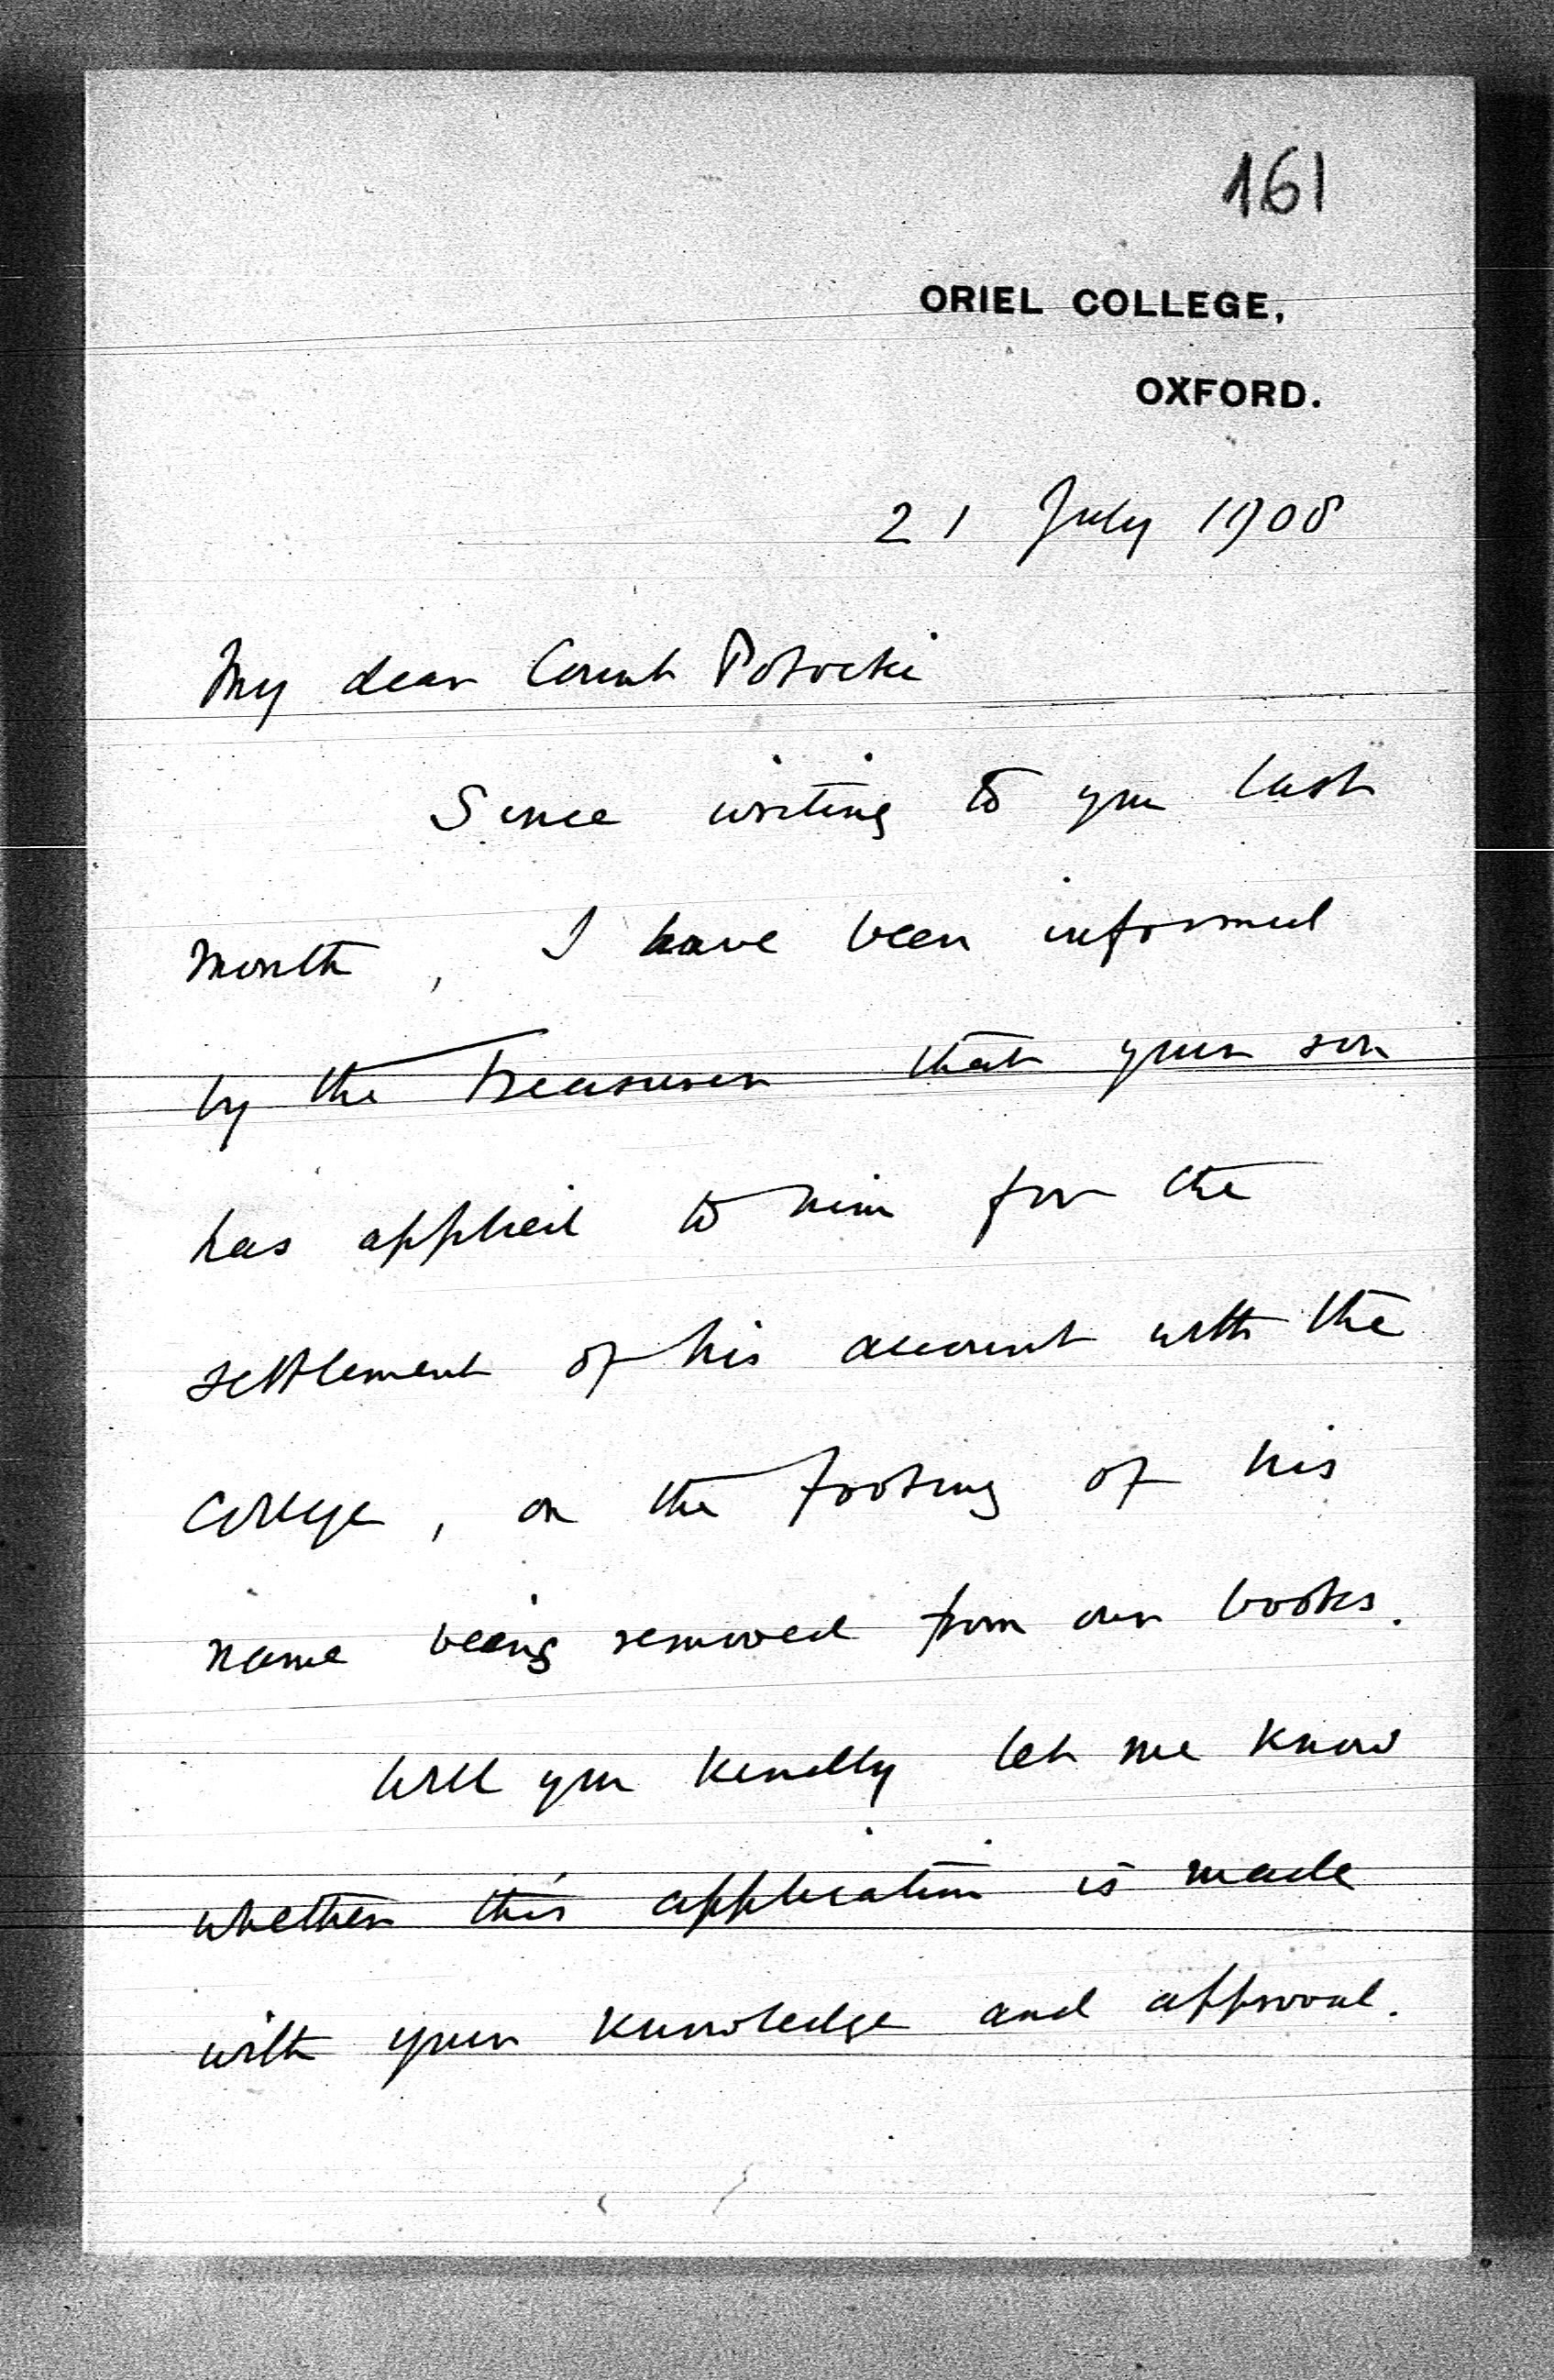 161
ORIEL COLLEGE,
OXFORD.
21 July 1908
My dear Count Potocki
Since writing to you last
month, I have been informed
by the Treasurer that your son
has applied to him for the
settlement of his account with the
College, on the footing of his
name being removed from our books.
Will you kindly let me know
whether this application is made
with your knowledge and approval.